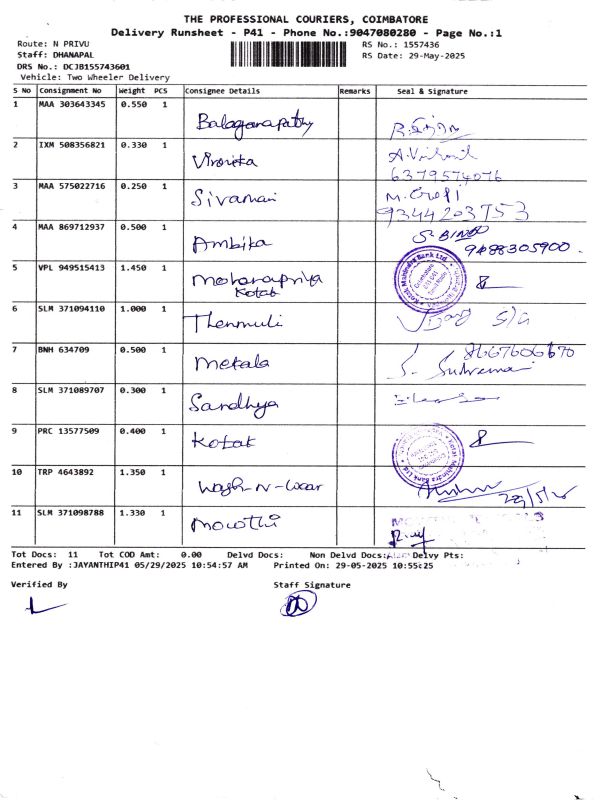 THE PROFESSIONAL COURIERS, COIMBATORE
Delivery Runsheet - P41 - Phone No.:9047080280 - Page No.:1
Route: N PRIVU
Staff: DHANAPAL
DRS No.: DCJB155743601
Vehicle: Two Wheeler Delivery
RS No.: 1557436
RS Date: 29-May-2025
S No Consignment No Weight PCS Consignee Details Remarks Seal & Signature
1 MAA 303643345 0.550 1 Balaganapathy
2 IXM 508356821 0.330 1 A.
6379574076
3 MAA 575022716 0.250 1 Sivamani M. Gopi
9344203753
4 MAA 869712937 0.500 1 Ambika
9488305900
5 VPL 949515413 1.450 1 Mohanapriya
Kotak
Kotak Mahindra Bank Ltd.
Coimbatore
6 SLM 371094110 1.000 1 Thenmuli S/G
7 BNH 634709 0.500 1 Mekala 8667606670
S.
8 SLM 371089707 0.300 1 Sandhya
9 PRC 13577509 0.400 1 Kotak
Kotak Mahindra Bank Ltd.
10 TRP 4643892 1.350 1 Wash-N-Wear 29/5/25
11 SLM 371098788 1.330 1
Tot Docs: 11 Tot COD Amt: 0.00 Delvd Docs: Non Delvd Docs: Delvy Pts:
Entered By :JAYANTHIP41 05/29/2025 10:54:57 AM Printed On: 29-05-2025 10:55:25
Verified By Staff Signature